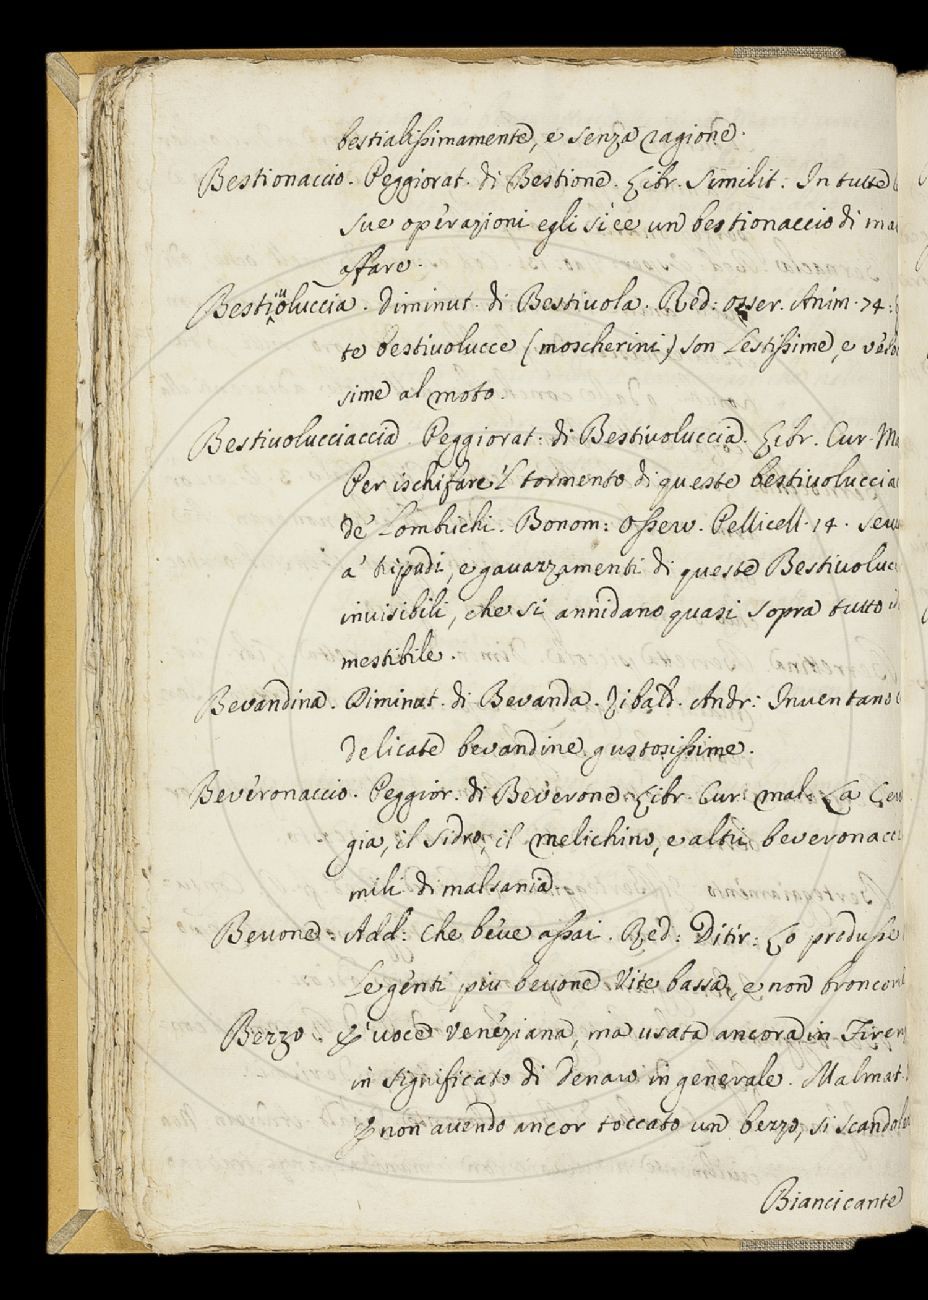 bestialissimamente, e senza ragione.
Bestionaccio. Peggiorat. di Bestione. Libr. Similit: In tutte
sue operazioni egli si è e un bestionaccio di
affare.
Bestiuoluccia. Diminut. di Bestivola. Red: Osser. Anim. 74:
te bestivolucce (moscherini) son Lestissime, e
sime al moto.
Bestivolucciaccia. Peggiorat: di Bestivoluccia. Libr. Cur.
Per ischifare 'l tormento di queste
de' Lombrichi. Bonom: Osserv. Pellicell. 14.
a' tripudi, e gavazzamenti di queste
invisibili, che si annidano quasi sopra tutto
mestibile.
Bevandina. Diminut. di Bevanda. Zibald. Andr: Inventano
delicate bevandine gustosissime.
Beveronaccio. Peggior. di Beverone. Libr. Cur: mal: La
gia, il Sidro, il melichino, e altri
mili di malsania.
Bevone: Add: Che beve assai. Red: Ditir: Lo produsse
Le genti piu bevone Vite bassa, e non
Bezzo. E' voce Veneziana, ma usata ancora in
in significato di Denaro in generale. Malmat.
E non avendo ancor toccato un bezzo, si
Biancicante